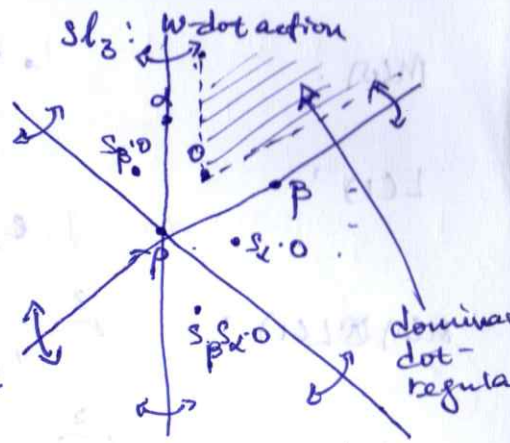 sl₃: W-dot action
α
s_β·0
0
β
-ρ
s_α·0
s_β s_α·0
dominan
dot-
regula